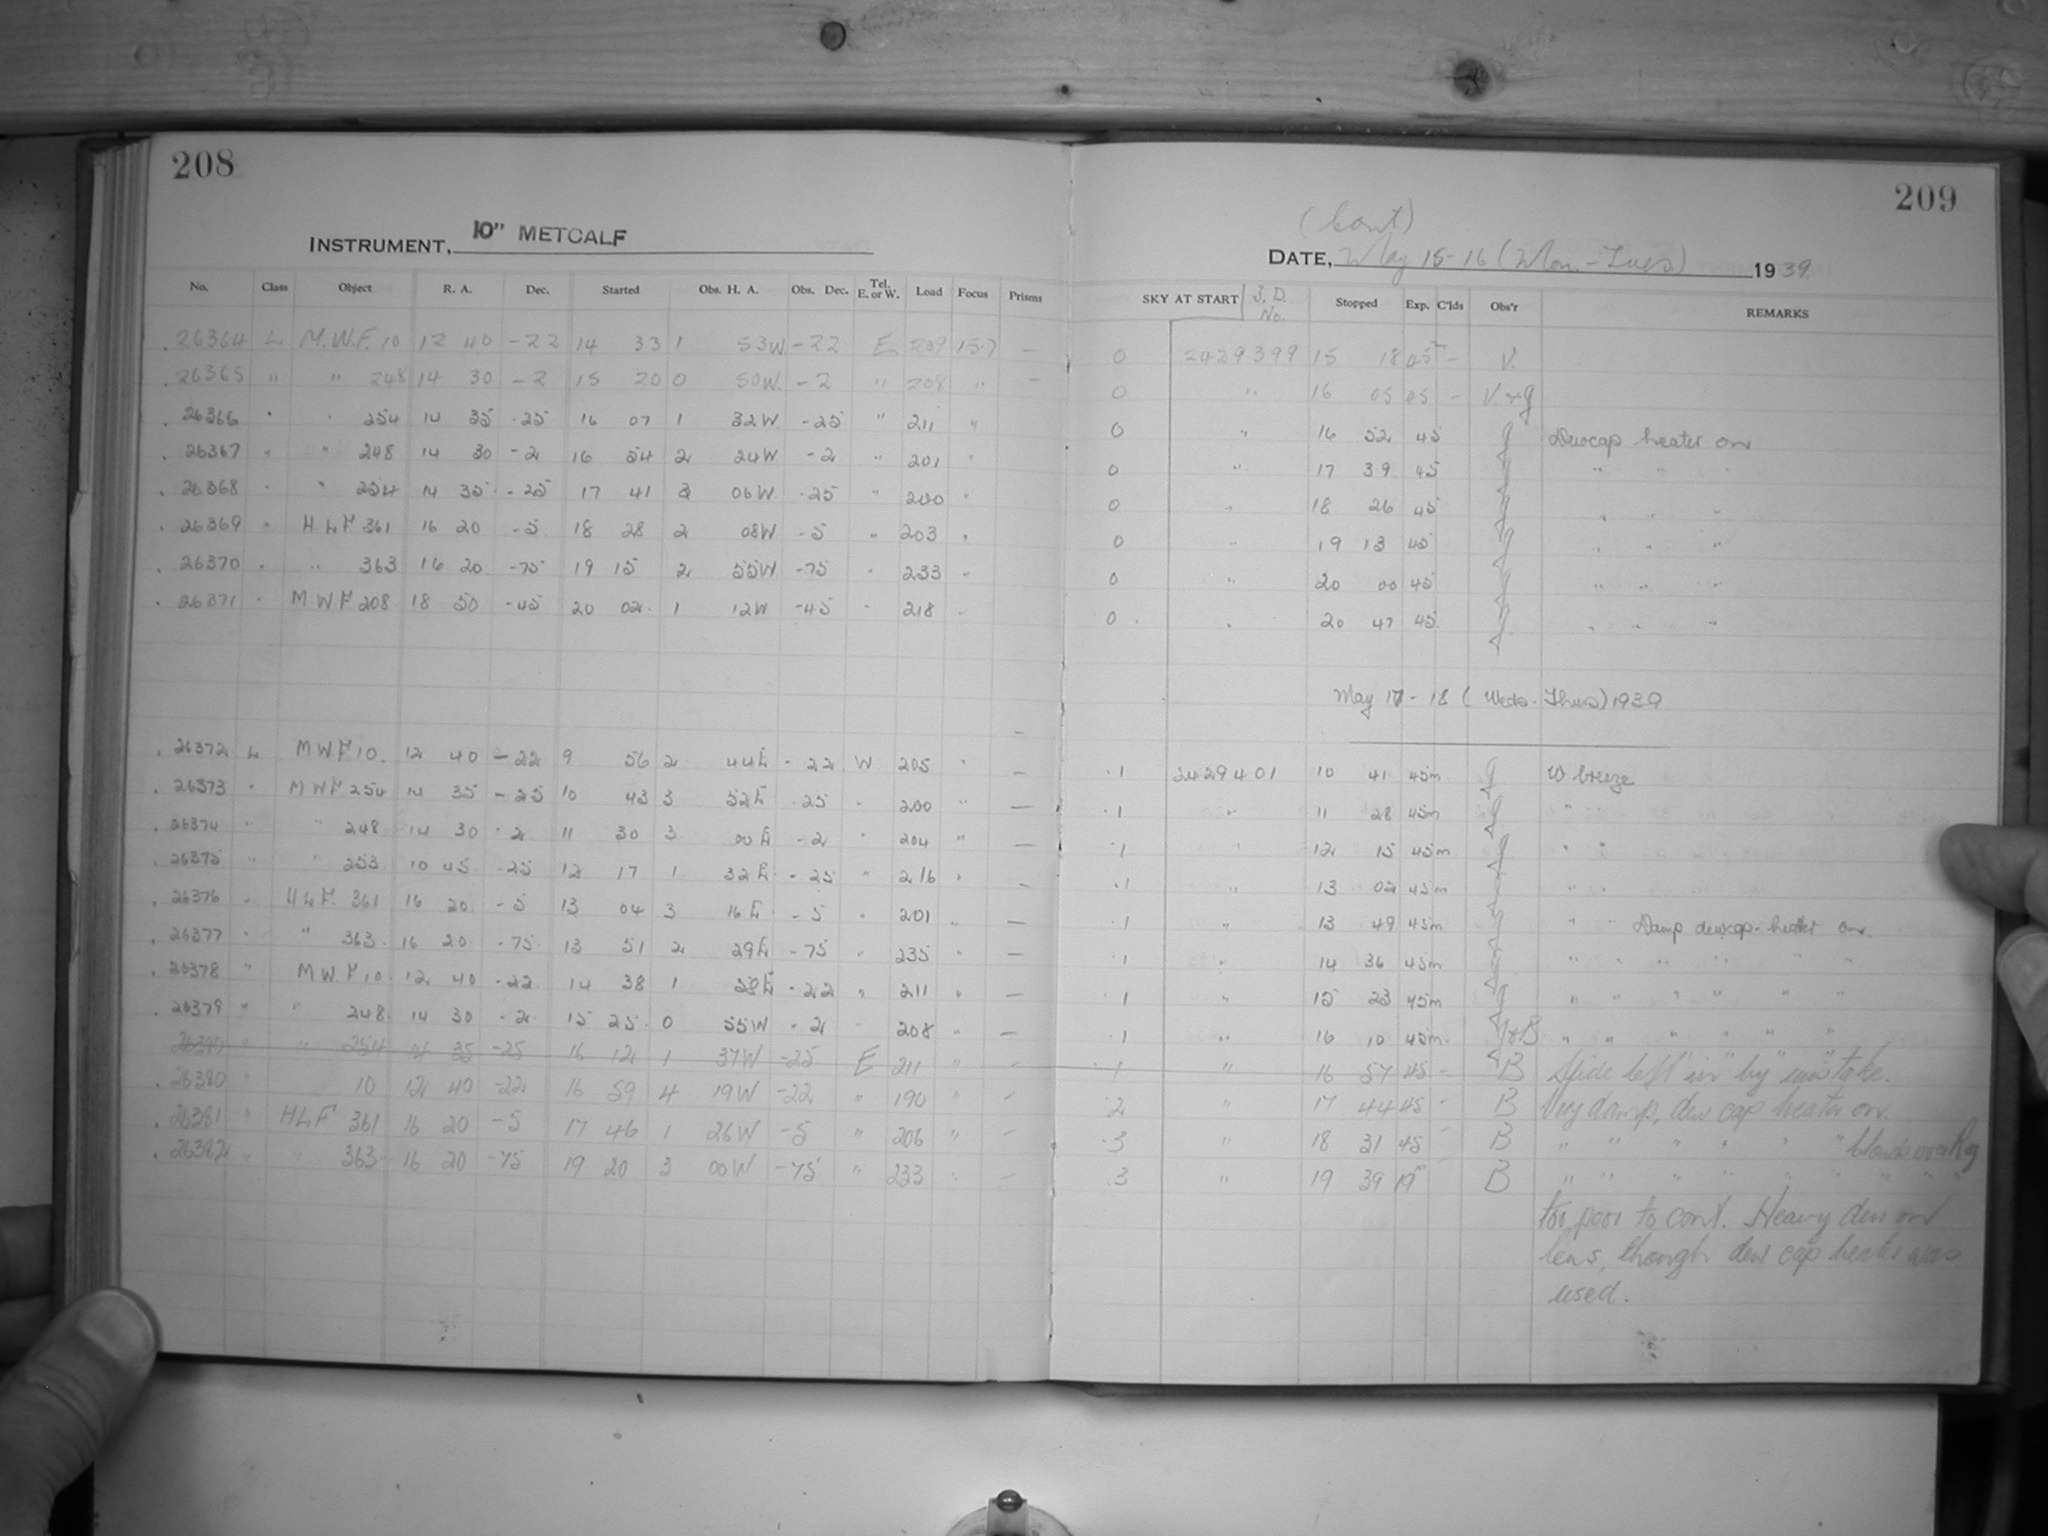 208
209
INSTRUMENT, 10" METCALF
(Cont)
DATE, May 15-16 (Mon.-Tues) 1939
No. Class Object R. A. Dec. Started Obs. H. A. Obs. Dec. Tel. E. or W. Load Focus Prisms SKY AT START J. D. No. Stopped Exp. C'lds Obs'r REMARKS
26364 L M.W.F. 10 12 40 -22 14 33 1 53W -22 E 209 15.7 — 0 2429399 15 18 45 - V.
26365 " " 248 14 30 -2 15 20 0 50W -2 " 208 " — 0 " 16 05 45 - V. + g
26366 " " 254 14 35 -25 16 07 1 32W -25 " 211 " 0 " 16 52 45 g Dewcap heater on
26367 " " 248 14 30 -2 16 54 2 24W -2 " 201 " 0 " 17 39 45 g " " "
26368 " " 254 14 35 -25 17 41 3 06W -25 " 200 " 0 " 18 26 45 g " " "
26369 " H.L.F. 361 16 20 -5 18 28 2 08W -5 " 203 " 0 " 19 13 45 g " " "
26370 " " 363 16 20 -75 19 15 2 55W -75 " 233 " 0 " 20 00 45 g " " "
26371 " M W F 208 18 50 -45 20 02 1 12W -45 " 218 " 0 " 20 47 45 g " " "
May 17-18 (Weds-Thurs) 1939
26372 L M W F 10 12 40 -22 9 56 2 44E -22 W 205 " — .1 2429401 10 41 45m g W breeze
26373 " M W F 254 14 35 -25 10 43 3 52E -25 " 200 " — .1 " 11 28 45m g " "
26374 " " 248 14 30 -2 11 30 3 00E -2 " 204 " — .1 " 12 15 45m g " "
26375 " " 253 10 45 -25 12 17 1 32E -25 " 216 " — .1 " 13 02 45m g " "
26376 " H L F. 361 16 20 -5 13 04 3 16E -5 " 201 " — .1 " 13 49 45m g " " Damp dewcap-heater on.
26377 " " 363 16 20 -75 13 51 2 29E -75 " 235 " — .1 " 14 36 45m g " " " " " "
26378 " M W F 10 12 40 -22 14 38 1 58E -22 " 211 " — .1 " 15 23 45m g " " " " " "
26379 " " 248 14 30 -2 15 25 0 55W -2 " 208 " — .1 " 16 10 45m g+B " " " " " "
26380 " " 254 14 35 -25 16 12 1 37W -25 E 211 " — .1 " 16 57 45 - B Slide left in by mistake.
26380 " 10 12 40 -22 16 59 4 19W -22 " 190 " — .2 " 17 44 45 - B Very damp, dew cap heater on.
26381 " HLF 361 16 20 -5 17 46 1 26W -5 " 206 " — .3 " 18 31 45 - B " " " " " " clouds over Rg
26382 " " 363 16 20 -75 19 20 3 00W -75 " 233 " — .3 " 19 39 19 B " " " " " " " " "
too poor to cont. Heavy dew on
lens, though dew cap heater was
used.